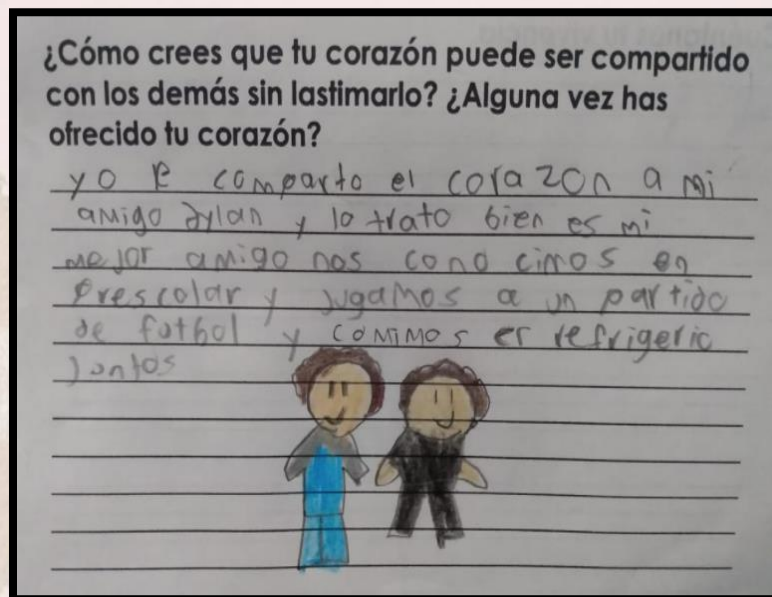 ¿Cómo crees que tu corazón puede ser compartido
con los demás sin lastimarlo? ¿Alguna vez has
ofrecido tu corazón?
yo le comparto el corazon a mi
amigo dylan y lo trato bien es mi
mejor amigo nos cono cimos en
prescolar y jugamos a un partido
de fotbol y comimos er refrigerio
juntos